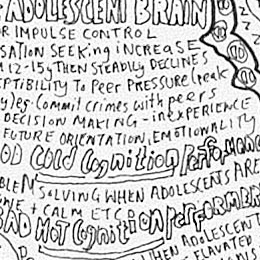 ADOLESCENT BRAIN
R IMPULSE CONTROL
SATION SEEKing iNCREASES
12-15y THEN STEADILY DECLINES
PTIBILITY To Peer PRESSURE (peak
y)eg. Commit crimes with peers
DECISION MAKING - inEXPERIENCE
FUTURE ORIENTATION, EMOTIONALITY
OD Cold Cognition PerfoRMANC
BLEM SOLVING WHEN ADOLESCENTS ARE
+ CALM ETC
BAD HOT Cognition PERFORMAN
WHEN ADOLESCENT
ELAVATED